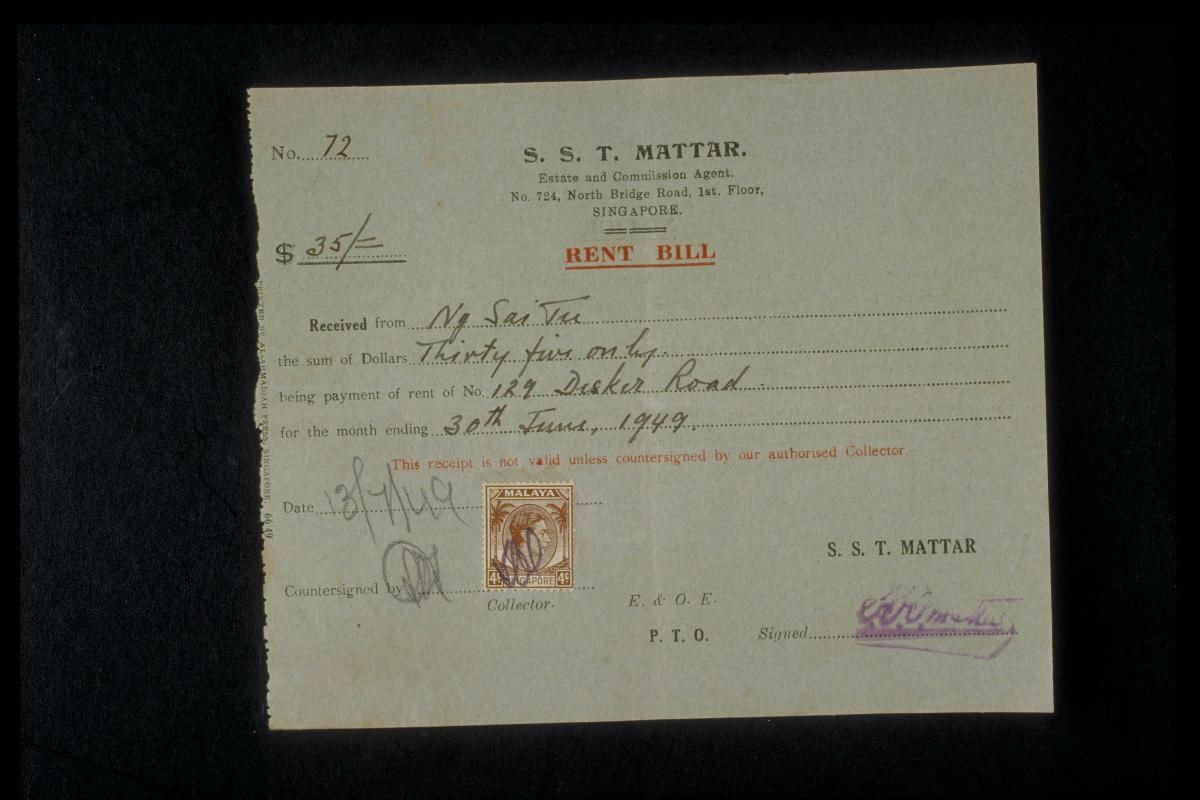 No. 72
S. S. T. MATTAR.
Estate and Commission Agent.
No. 724, North Bridge Road, 1st. Floor,
SINGAPORE.
$ 35/=
RENT BILL
Received from Ng Sai Tu
the sum of Dollars Thirty five only.
being payment of rent of No. 129 Desker Road.
for the month ending 30th June, 1949.
This receipt is not valid unless countersigned by our authorised Collector.
Date 13/7/49
MALAYA
4c SINGAPORE 4c
S. S. T. MATTAR
Countersigned by
Collector.
E. & O. E.
P. T. O.
Signed
PRINTED BY AL-AHMADIAH PRESS, SINGAPORE. 66 49